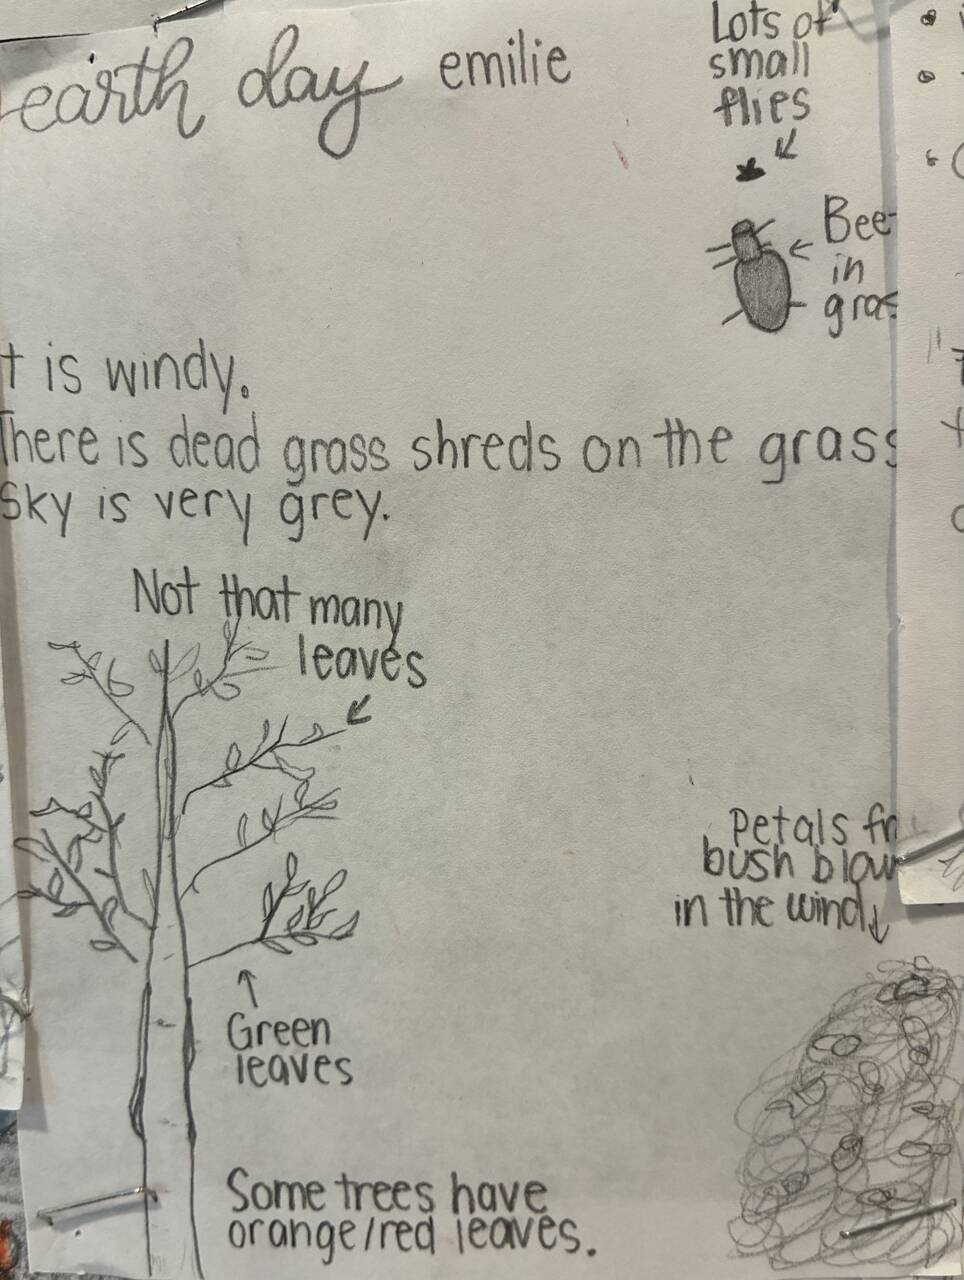 earth day emilie
Lots of
small
flies
Bee
in
gras
t is windy.
There is dead grass shreds on the grass
sky is very grey.
Not that many
leaves
Petals fr
bush blow
in the wind
Green
leaves
Some trees have
orange/red leaves.